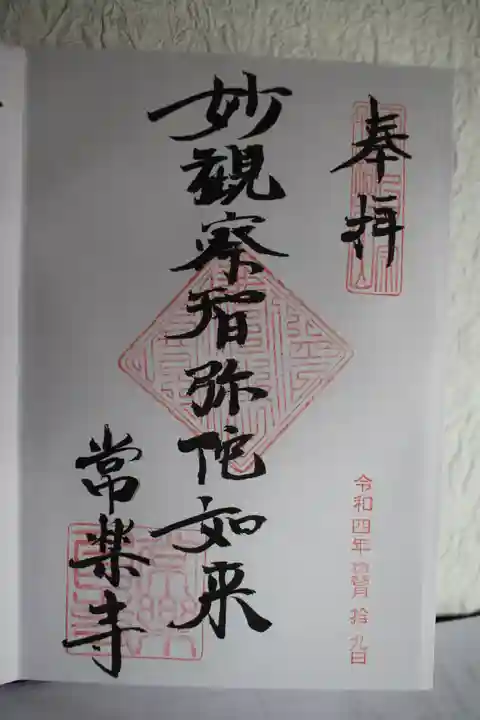 奉拝
妙觀察智弥陀如来
常楽寺
令和四年 拾九日